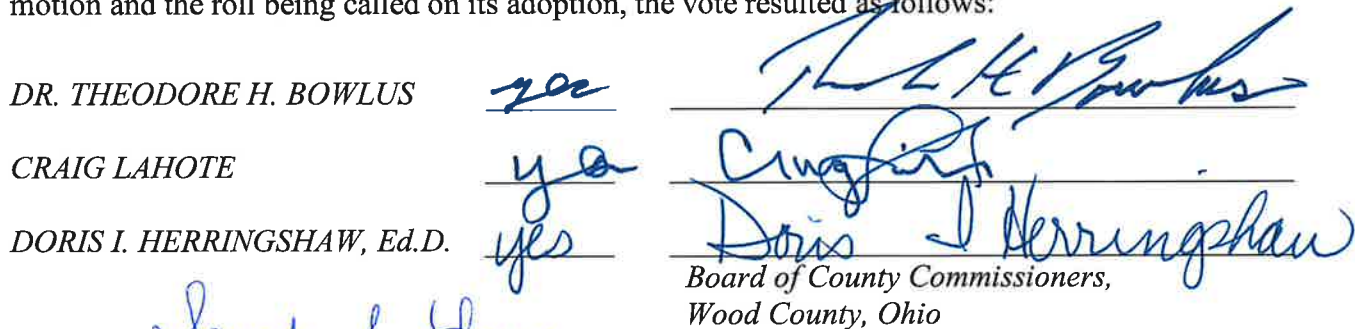 motion and the roll being called on its adoption, the vote resulted as follows:
DR. THEODORE H. BOWLUS yes H Bowlus
CRAIG LAHOTE yes Craig
DORIS I. HERRINGSHAW, Ed.D. yes Doris I Herringshaw
Board of County Commissioners,
Wood County, Ohio